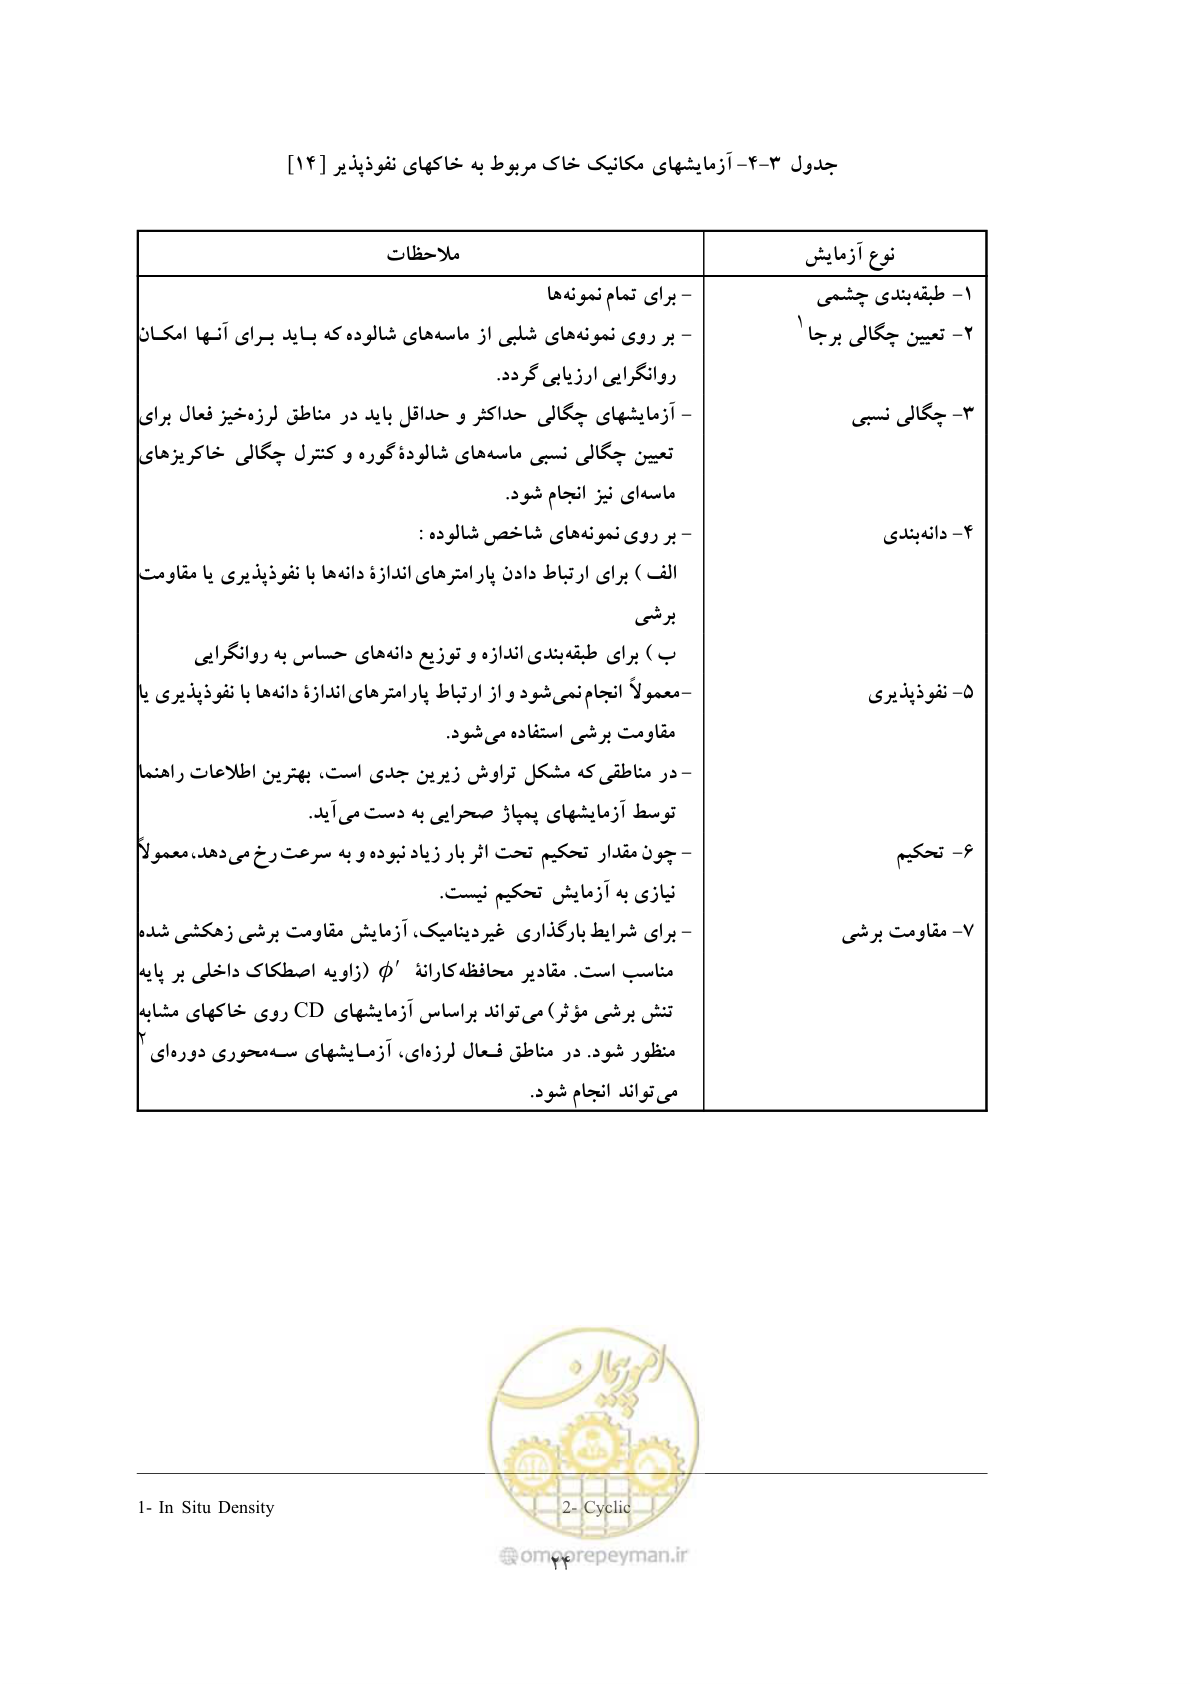 جدول ۳-۴- آزمایشهای مکانیک خاک مربوط به خاکهای نفوذپذیر [۱۴]
نوع آزمایش
ملاحظات
۱- طبقه‌بندی چشمی
- برای تمام نمونه‌ها
۲- تعیین چگالی برجا۱
- بر روی نمونه‌های شلبی از ماسه‌های شالوده که باید برای آنها امکان
روانگرایی ارزیابی گردد.
۳- چگالی نسبی
- آزمایشهای چگالی حداکثر و حداقل باید در مناطق لرزه‌خیز فعال برای
تعیین چگالی نسبی ماسه‌های شالودهٔ گوره و کنترل چگالی خاکریزهای
ماسه‌ای نیز انجام شود.
۴- دانه‌بندی
- بر روی نمونه‌های شاخص شالوده :
الف ) برای ارتباط دادن پارامترهای اندازهٔ دانه‌ها با نفوذپذیری یا مقاومت
برشی
ب ) برای طبقه‌بندی اندازه و توزیع دانه‌های حساس به روانگرایی
۵- نفوذپذیری
-معمولاً انجام نمی‌شود و از ارتباط پارامترهای اندازهٔ دانه‌ها با نفوذپذیری یا
مقاومت برشی استفاده می‌شود.
- در مناطقی که مشکل تراوش زیرین جدی است، بهترین اطلاعات راهنما
توسط آزمایشهای پمپاژ صحرایی به دست می‌آید.
۶- تحکیم
- چون مقدار تحکیم تحت اثر بار زیاد نبوده و به سرعت رخ می‌دهد، معمولاً
نیازی به آزمایش تحکیم نیست.
۷- مقاومت برشی
- برای شرایط بارگذاری غیردینامیک، آزمایش مقاومت برشی زهکشی شده
مناسب است. مقادیر محافظه‌کارانهٔ ϕ′ (زاویه اصطکاک داخلی بر پایه
تنش برشی مؤثر) می‌تواند براساس آزمایشهای CD روی خاکهای مشابه
منظور شود. در مناطق فعال لرزه‌ای، آزمایشهای سه‌محوری دوره‌ای۲
می‌تواند انجام شود.
امور پیمان
1- In Situ Density 2- Cyclic
@omoorepeyman.ir
۲۴